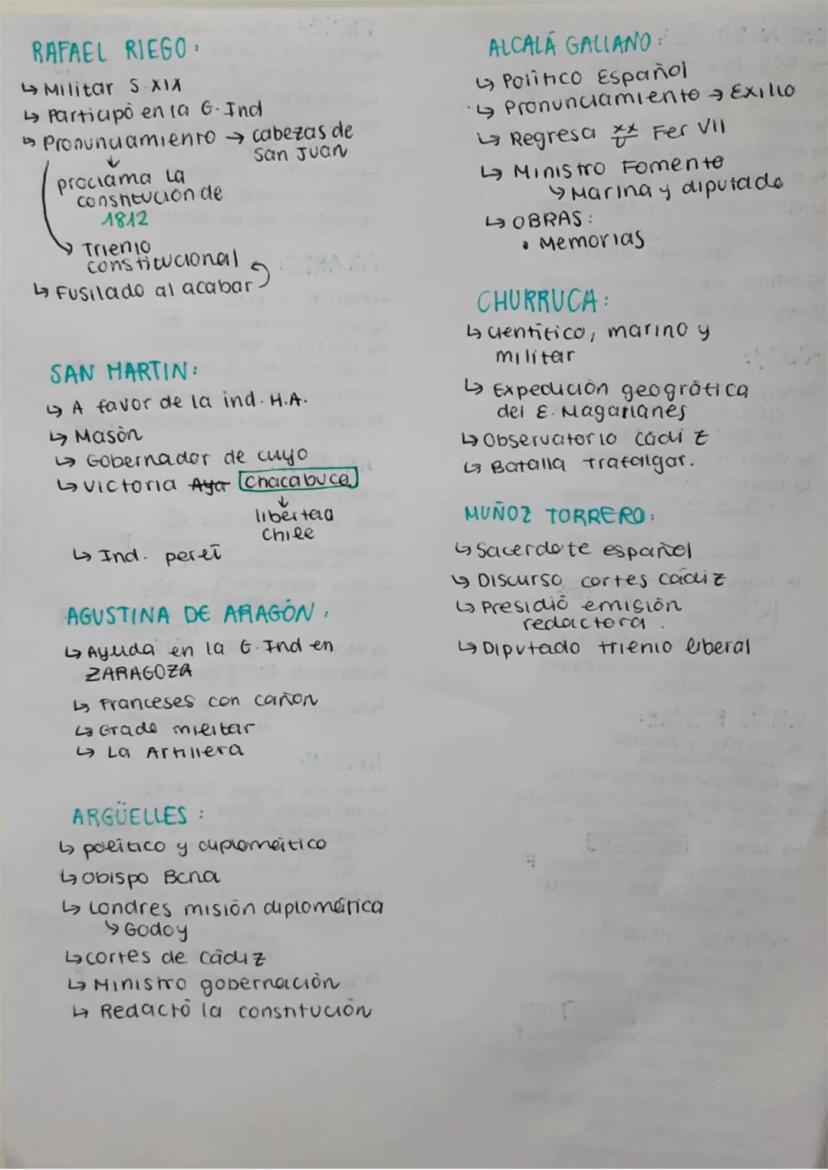 RAFAEL RIEGO:
↳ Militar S.XIX
↳ Participó en la G.Ind
↳ Pronunciamiento → cabezas de
San Juan
↓
proclama la
constitución de
1812
↳ Trienio
constitucional
↳ Fusilado al acabar
SAN MARTIN:
↳ A favor de la ind. H.A.
↳ Masón
↳ Gobernador de cuyo
↳ Victoria Aya Chacabuco
↓
libertad
Chile
↳ Ind. perú
AGUSTINA DE ARAGÓN.
↳ Ayuda en la G.Ind en
ZARAGOZA
↳ Franceses con cañon
↳ Grado militar
↳ La Artillera
ARGÜELLES:
↳ político y diplomático
↳ Obispo Bcna
↳ Londres misión diplomática
↳ Godoy
↳ cortes de cádiz
↳ Ministro gobernación
↳ Redactó la constitución
ALCALÁ GALIANO:
↳ Político Español
↳ Pronunciamiento → Exilio
↳ Regresa Fer VII
↳ Ministro Fomento
↳ Marina y diputado
↳ OBRAS:
• Memorias
CHURRUCA:
↳ científico, marino y
militar
↳ Expedición geográfica
del E. Magallanes
↳ Observatorio cádiz
↳ Batalla Trafalgar.
MUÑOZ TORRERO:
↳ Sacerdote español
↳ Discurso cortes cádiz
↳ Presidió emisión
redactora.
↳ Diputado trienio liberal